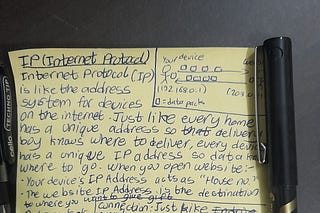 IP (Internet Protocol)
Internet Protocol (IP)
is like the address
system for devices
on the internet. Just like every home
has a unique address so that delivery
boy knows where to deliver, every device
has a unique IP address so data knows
where to go when you open website:-
· Your device's IP Address acts as "House no"
· The website IP Address is the destination
to where you want to give gift
connection: Just like
Your device
(192.168.0.1)
= data packs
cello TECHNOTIP